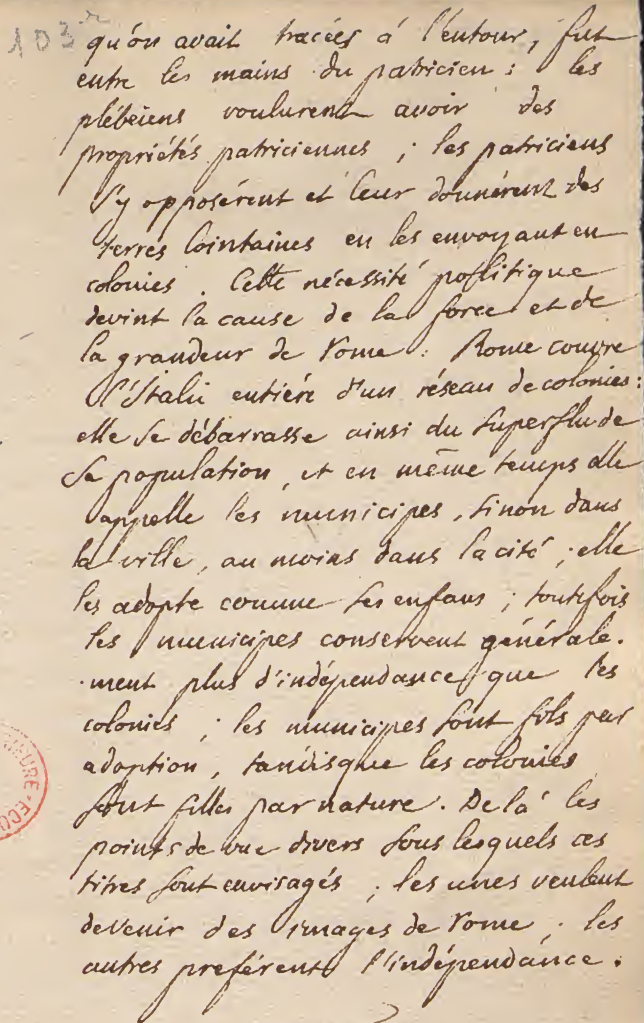 103r
qu'on avait tracées à l'entour, fut
entre les mains du patricien : les
plébéiens voulurent avoir des
propriétés patriciennes ; les patriciens
s'y opposérent et leur donnérent des
terres lointaines en les envoyant en
colonies. Cette nécessité politique
devint la cause de la force et de
la grandeur de Rome : Rome couvre
l'Italie entiére d'un réseau de colonies :
elle se débarrasse ainsi du superflu de
sa population, et en même temps elle
appelle les municipes, sinon dans
la ville, au moins dans la cité ; elle
les adopte comme ses enfans ; toutefois
les municipes conservent générale-
-ment plus d'indépendance que les
colonies ; les municipes sont fils par
adoption, tandisque les colonies
sont filles par nature. De là les
points de vue divers sous lesquels ces
titres sont envisagés ; les unes veulent
devenir des images de Rome ; les
autres preférent l'indépendance.